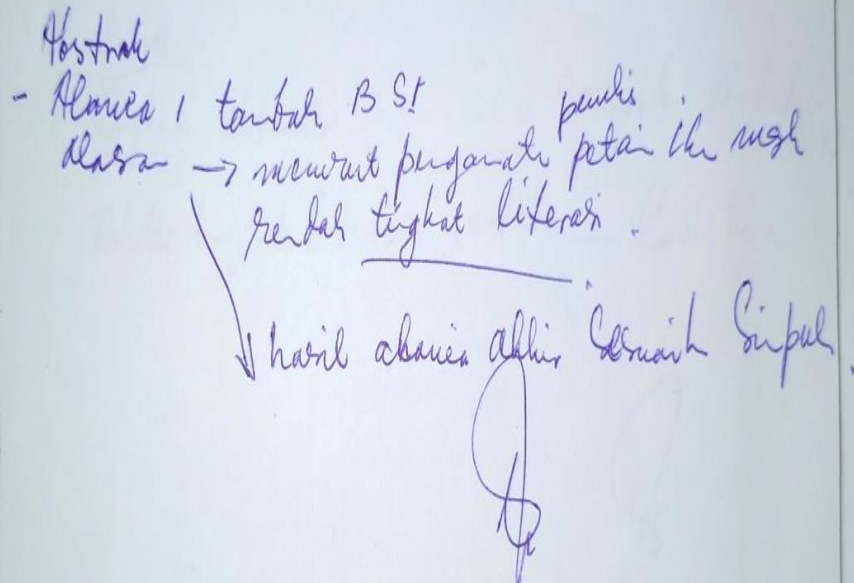 Abstrak
- Alinea 1 tambah B SI
penulis
alasan → menurut pengamatan petani masih
rendah tingkat literasi.
hasil alinea akhir Sesuaik Simpul